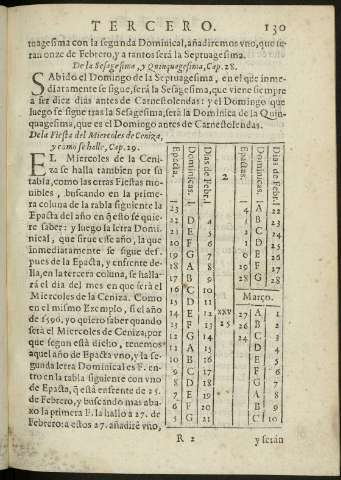 TERCERO. 130
tuagesima con la segunda Dominical, añadiremos vno, que se-
ran onze de Febrero, y a tantos serà la Septuagesima.
De la Sesagesima, y Quinquagesima, Cap. 28.
SAbido el Domingo de la Septuagesima, en el que inme-
diatamente se sigue, serà la Sesagesima, que viene siempre
a ser diez dias antes de Carnestolendas: y el Domingo que
luego se sigue tras la Sesagesima, serà la Dominica de la Quin-
quagesima, que es el Domingo antes de Carnestolendas.
De la Fiesta del Miercoles de Ceniza,
y como se halle, Cap. 29.
EL Miercoles de la Ceni-
za se halla tambien por su
tabla, como las otras Fiestas mo-
uibles, buscando en la prime-
ra coluna de la tabla siguiente la
Epacta del año en q̃ esto se quie
re saber: y luego la letra Domi-
nical, que sirue este año, la que
inmediatamente se sigue des-
pues de la Epacta, y enfrente de-
lla, en la tercera coluna, se halla-
rá el dia del mes en que serà el
Miercoles de la Ceniza. Como
en el mismo Exemplo, si el año
de 1596. yo quiero saber quando
serà el Miercoles de Ceniza; por
que segun està dicho, tenemos
aquel año de Epacta vno, y la se-
gunda letra Dominical es F. en-
tro en la tabla siguiente con vno
de Epacta, q̃ està enfrente de 25.
de Febrero, y buscando mas aba-
xo la primera F. la hallo a 27. de
Febrero: a estos 27. añadirè vno,
Epacta. Dominicas. Dias de Febr. 2 Epactas. Dominicas. Dias de Febr.
23
22 D 4
21 E 5
20 F 6
19 G 7
18 A 8
17 B 9
16 C 10
15 D 11
14 E 12 XXV
13 F 13 25
12 G 14
11 A 15
10 B 16
9 C 17
8 D 18
7 E 19
6 F 20
5 G 21
4 A 22
3 B 23
2 C 24
1 D 25
0 E 26
29 F 27
28 G 28
Março.
27 A 1
26 B 2
24 C 3
D 4
E 5
F 6
G 7
A 8
B 9
C 10
R 2 y seràn